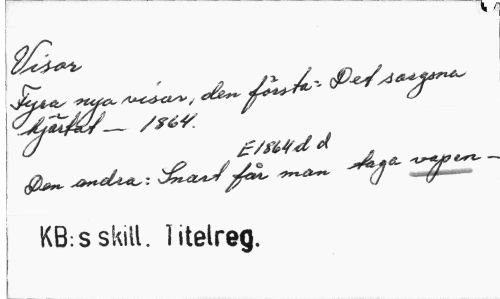 Visor
Fyra nya visor, den första: Det sorgsna
hjärtat — 1864.
E1864 d d
Den andra: Snart får man taga vapen —
KB:s skill. Titelreg.